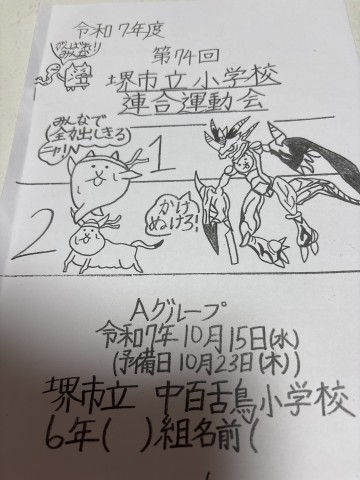 令和7年度
がんばれ!
みんな!
第74回
堺市立小学校
連合運動会
みんなで
全力出しきる
ニャ!ー
1
2
かけ
ぬけろ!
Aグループ
令和7年10月15日(水)
(予備日10月23日(木))
堺市立 中百舌鳥小学校
6年( )組名前(